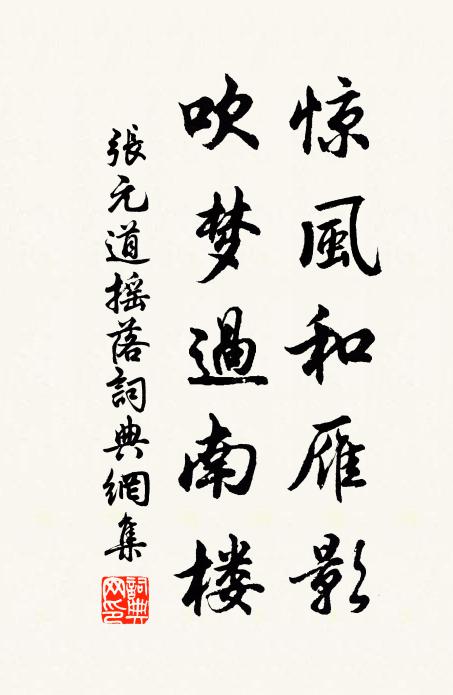 惊風和雁影
吹梦過南楼
張元道摇落詞典網集
詞典
网印